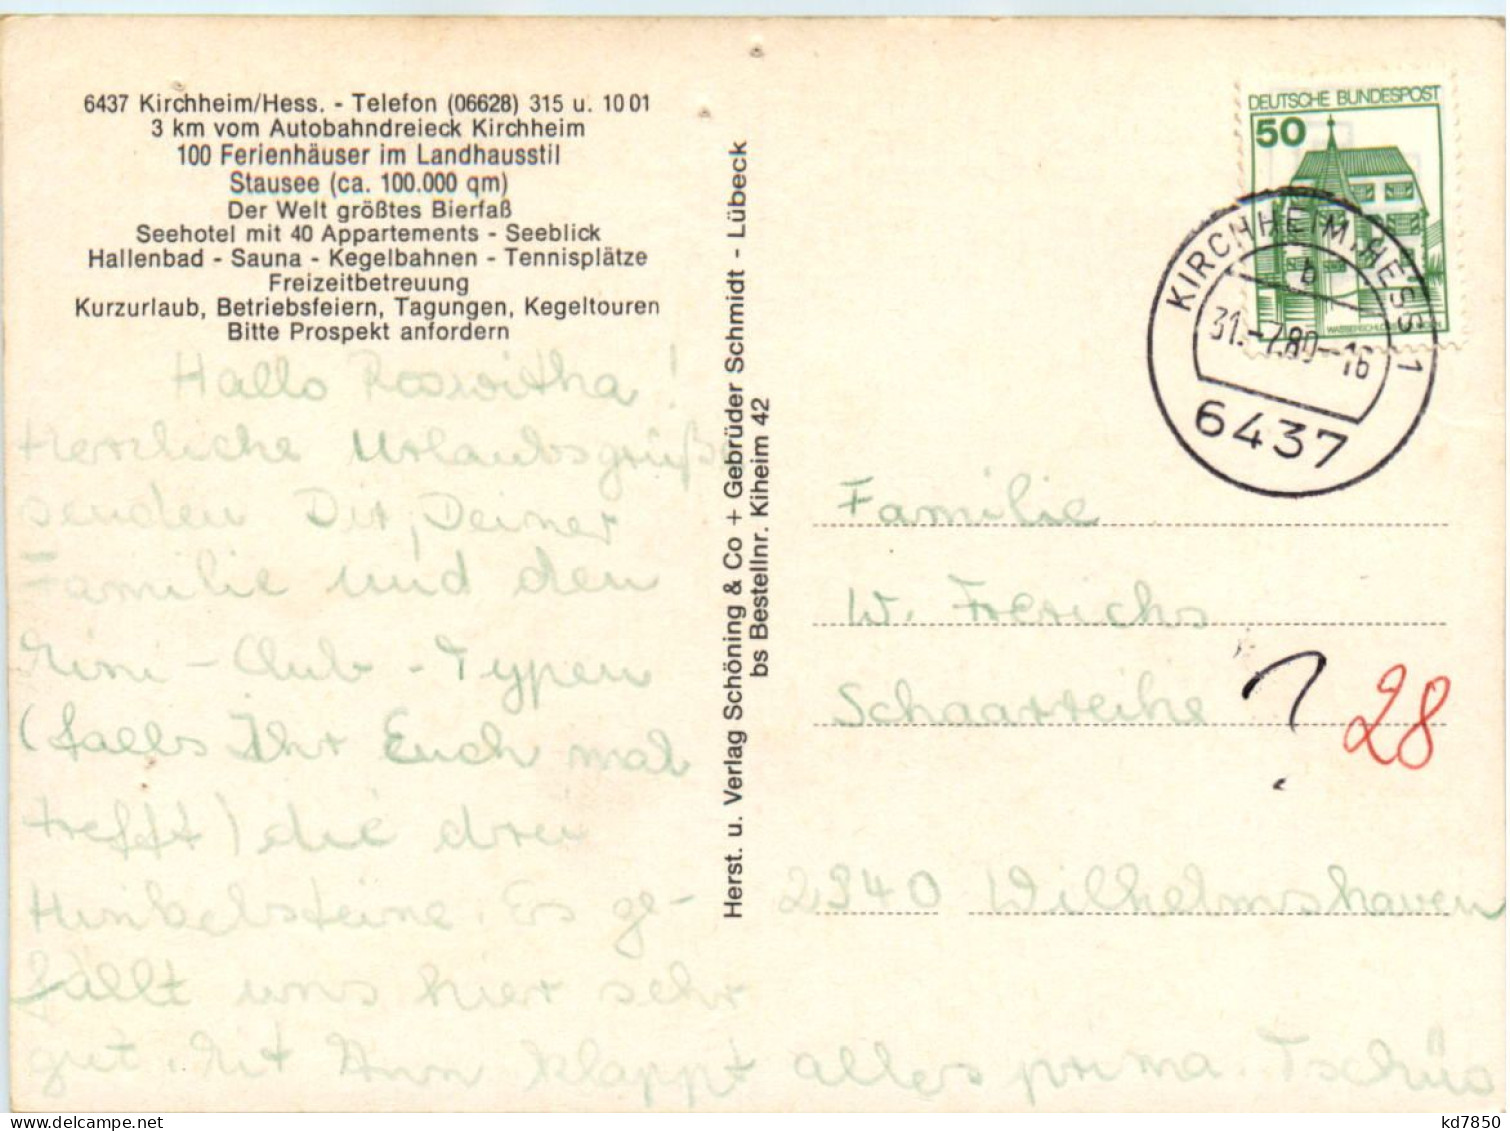 6437 Kirchheim/Hess. - Telefon (06628) 315 u. 10 01
3 km vom Autobahndreieck Kirchheim
100 Ferienhäuser im Landhausstil
Stausee (ca. 100.000 qm)
Der Welt größtes Bierfaß
Seehotel mit 40 Appartements - Seeblick
Hallenbad - Sauna - Kegelbahnen - Tennisplätze
Freizeitbetreuung
Kurzurlaub, Betriebsfeiern, Tagungen, Kegeltouren
Bitte Prospekt anfordern
Hallo Roswitha!
Herzliche Urlaubsgrüße
senden Dir, Deiner
Familie und den
Mini-Club-Typen
(falls Ihr Euch mal
trefft) die drei
Hinkelsteine. Es ge-
fällt uns hier sehr
gut. Mit klappt alles prima. Tschüs
Herst. u. Verlag Schöning & Co + Gebrüder Schmidt - Lübeck
bs Bestellnr. Kiheim 42
DEUTSCHE BUNDESPOST
50
WASSERSCHLO
KIRCHHEIM, HESS 1
b
31.-7.80-16
6437
Familie
W. Frerichs
Schaarreihe ? 28
2940 Wilhelmshaven
kd7850